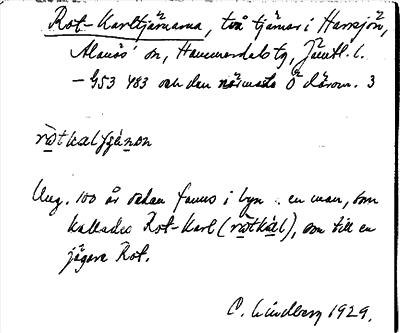 Rot-Karltjärnarna, två tjärnar i Harrsjön,
Alanäs' sn, Hammerdals tg, Jämtl. l.
— G53 483 och den närmaste Ö därom. 3
ròtkalʃjä́ṇon
Ung. 100 år sedan fanns i byn en man, som
kallades Rot-Karl (ròtkàl), son till en
jägare Rot.
C. Lindberg 1929.